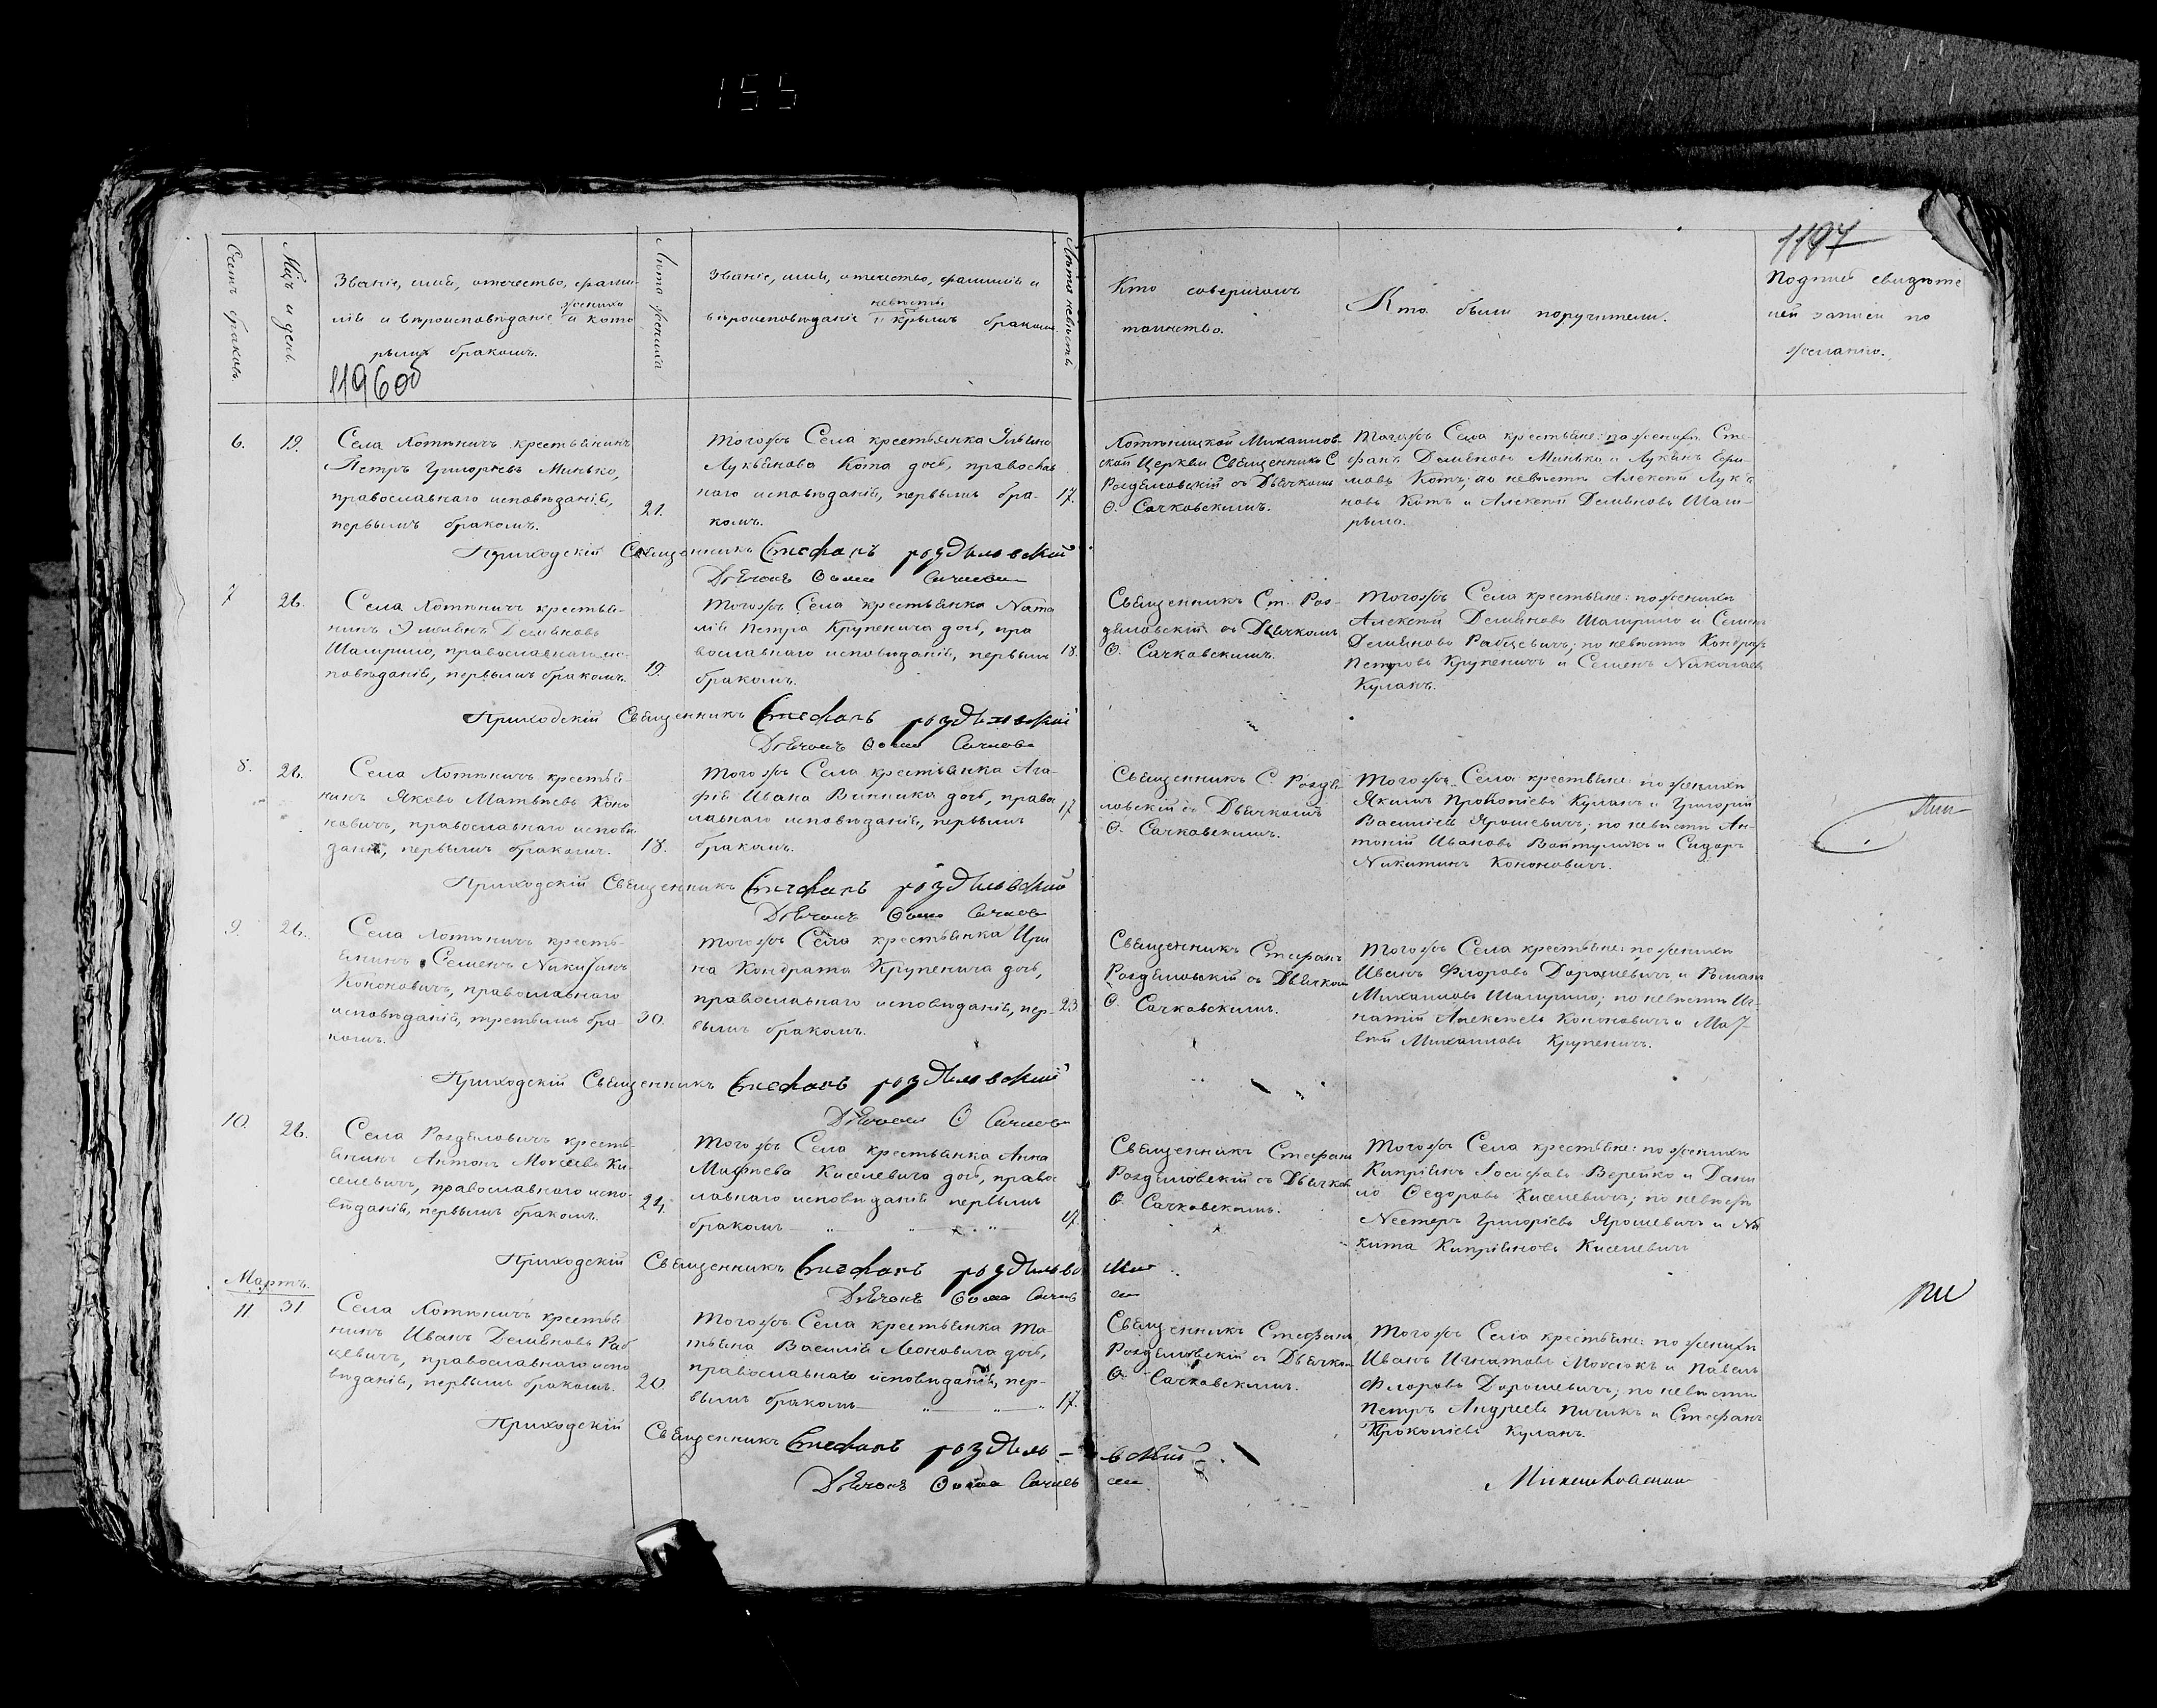 155
1197
Счетъ браковъ
Мѣц. и день.
Званіе, имя, отчество, фами-
жениха
лія и вѣроисповѣданіе и кото
рымъ бракомъ.
1196об
Лѣта жениха
Званіе, имя, отчество, фамилія и
невѣсты
вѣроисповѣданіе и крымъ бракомъ
Лѣта невѣсты
Кто совершалъ
таинство.
Кто были поручители.
Подпись свидѣте
лей записи по
желанію.
6.
19.
Села Хотыничъ крестьянинъ
Петръ Григорьевъ Минько,
православнаго исповѣданія,
первымъ бракомъ.
21.
Тогожъ Села крестьянка
Лукьянова Кота доч, православ
наго исповѣданія, первымъ бра-
комъ.
17.
Хотыницкой Михаилов
ской Церкви Священникъ С
Роздяловскій съ Дьячкомъ
Ѳ. Сачковскимъ.
Тогожъ Села крестьяне: по женихѣ Сте-
фанъ Демьяновъ Минько и Лукьянъ
мовъ Котъ; по невѣстѣ Алексѣй Лукья
новъ Котъ и Алексѣй Демьяновъ Шам-
рыло.
Приходскій Священникъ Стефанъ Роздяловскій
Дьячокъ Ѳома Сачковскій
7
26.
Села Хотыничъ крестья-
нинъ Эмельянъ Демьяновъ
Шамрило, православнаго ис-
повѣданія, первымъ бракомъ.
19.
Тогожъ Села крестьянка Ната
лія Петра Крупенича доч, пра
вославнаго исповѣданія, первымъ
бракомъ.
18.
Священникъ Ст. Роз-
дяловскій съ Дьячкомъ
Ѳ. Сачковскимъ.
Тогожъ Села крестьяне: по женихѣ
Алексѣй Демьяновъ Шамрило и Семенъ
Демьяновъ Рабцевичъ; по невѣстѣ Кондратъ
Петровъ Крупеничъ и Семенъ Николаевъ
Куланъ.
Приходскій Священникъ Стефанъ Роздяловскій
Дьячокъ Ѳома Сачков
8.
26.
Села Хотыничъ крестья-
нинъ Яковъ Матвѣевъ Коно
новичъ, православнаго исповѣ
данія, первымъ бракомъ.
18.
Тогожъ Села крестьянка Ага-
фія Ивана Винника доч, правос
лавнаго исповѣданія, первымъ
бракомъ.
17
Священникъ С. Роздя
ловскій съ Дьячкомъ
Ѳ. Сачковскимъ.
Тогожъ Села крестьяне: по женихѣ
Якимъ Прокопіевъ Куланъ и Григорій
Василіевъ Ярошевичъ; по невѣстѣ Ан-
тоній Ивановъ Войтулякъ и Сидоръ
Никитинъ Кононовичъ.
Приходскій Священникъ Стефанъ Роздяловскій
Дьячокъ Ѳома Сачков
9.
26.
Села Хотыничъ кресть-
янинъ Семенъ Никитинъ
Кононовичъ, православнаго
исповѣданія, третьимъ бра-
комъ.
30.
Тогожъ Села крестьянка Ири
на Кондрата Крупенича доч,
православнаго исповѣданія, пер-
вымъ бракомъ.
23.
Священникъ Стефанъ
Роздяловскій съ Дьячком
Ѳ. Сачковскимъ.
Тогожъ Села крестьяне: по женихѣ
Иванъ Флоровъ Дорошевичъ и Романъ
Михаиловъ Шамрило; по невѣстѣ Иг-
натій Алексѣевъ Кононовичъ и Мат-
вѣй Михаиловъ Крупеничъ.
Приходскій Священникъ Стефанъ Роздяловскій
Дьячокъ Ѳ Сачков
10.
26.
Села Роздяловичъ кресть-
янинъ Антонъ Моисеевъ Ки-
селевичъ, православнаго испо-
вѣданія, первымъ бракомъ.
24.
Тогожъ Села крестьянка Анна
Киселевича доч, правос
лавнаго исповѣданія первымъ
бракомъ
17.
Священникъ Стефанъ
Роздяловскій съ Дьячком
Ѳ. Сачковскимъ.
Тогожъ Села крестьяне: по женихѣ
Кипріянъ Іосифовъ Верейко и Дани
ло Ѳедоровъ Киселевичъ; по невѣстѣ
Нестеръ Григоріевъ Ярошевичъ и Ни
кита Кипріяновъ Киселевичъ
Приходскій Священникъ Стефанъ Роздяловскій
Дьячокъ Ѳома Сачков
Мартъ.
11
31
Села Хотыничъ крестья
нинъ Иванъ Демьяновъ Раб
цевичъ, православнаго испо
вѣданія, первымъ бракомъ.
20.
Тогожъ Села крестьянка Та-
тьяна Василія Леоновича доч,
православнаго исповѣданія, пер-
вымъ бракомъ
17.
Священникъ Стефанъ
Роздяловскій съ Дьячком
Ѳ. Сачковскимъ.
Тогожъ Села крестьяне: по женихѣ
Иванъ Игнатовъ и Павелъ
Флоровъ Дорошевичъ; по невѣстѣ
Петръ Андреевъ Пичикъ и Стефанъ
Прокопіевъ Куланъ.
Приходскій Священникъ Стефанъ Роздяловскій
Дьячокъ Ѳома Сачков